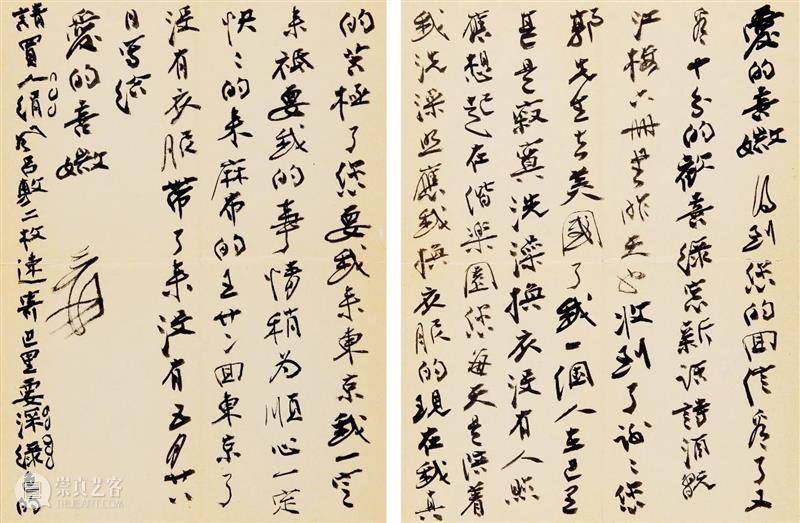 愛的喜媺 得到您的回信看了又
看十分的歡喜綠
江梅六冊是昨天也收到了謝謝您
郭先生去美國了我一個人在巴里
甚是寂寞洗澡換衣沒有人照
應想起在偕樂園您每天是陪着
我洗澡照應我換衣服的現在我真
的苦極了您要我來東京我一定
來祇要我的事情稍為順心一定
快〻的來麻布的王廿二回東京了
沒有衣服帶了來沒有五月廿八
日寫給
愛的喜媺
爰
請買人絹風呂敷二枚遠寄巴里要深綠色的
崇真艺客